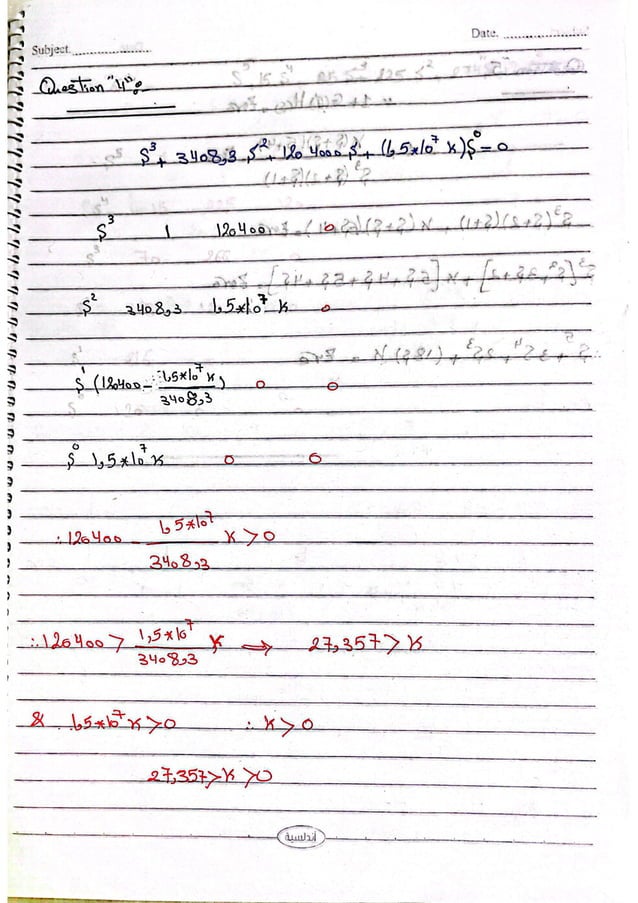 Date. ........................
Subject. ........................
Question "4":-
S³ + 3408,3 S² + 120 4000 S¹ + (1,5*10⁷ K) S⁰ = 0
S³ 1 120400 0
S² 3408,3 1,5*10⁷ K 0
S¹ (120400 - 1,5*10⁷ K / 3408,3) 0 0
S⁰ 1,5*10⁷ K 0 0
∴ 120400 - 1,5*10⁷ / 3408,3 K > 0
∴ 120400 > 1,5*10⁷ / 3408,3 K ⇒ 27,357 > K
& 1,5*10⁷ K > 0 ∴ K > 0
27,357 > K > 0
أندلسية